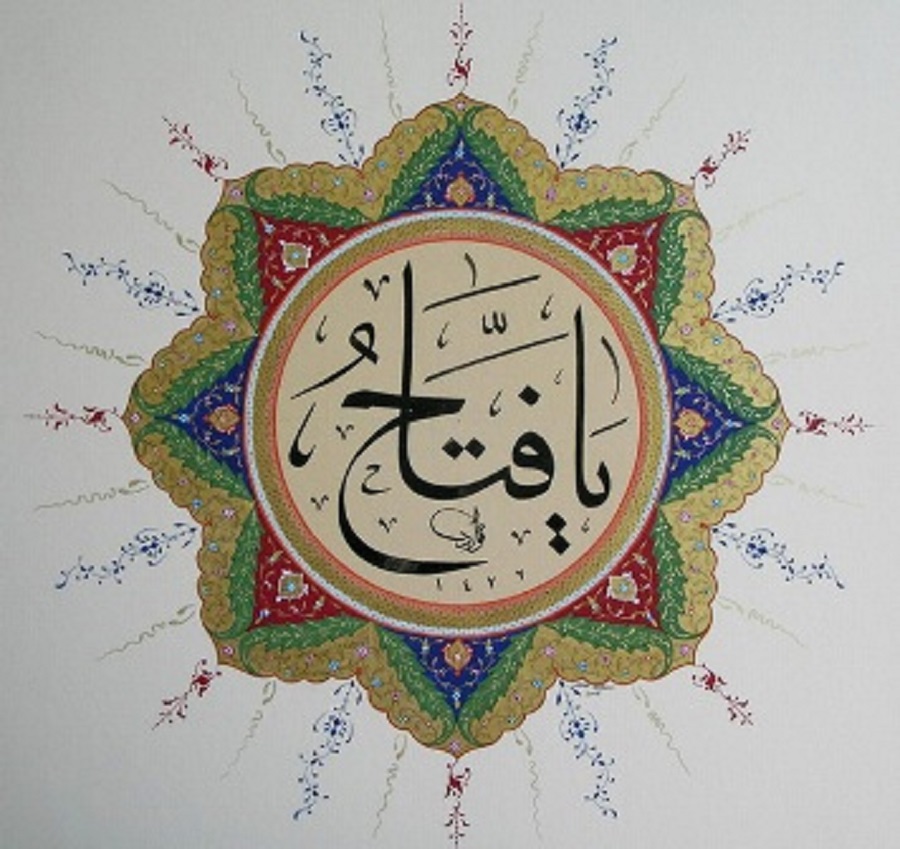 يَا فَتَّاحُ
١٤٢٢